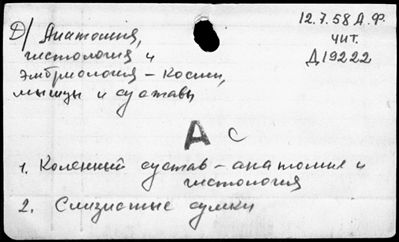 Д/ Анатомия,
гистология и
эмбриология - Кости,
мышцы и суставы
12.7.58 А.Ф.
чит.
Д19222
А с
1. Коленный сустав - анатомия и
гистология
2. Слизистые сумки